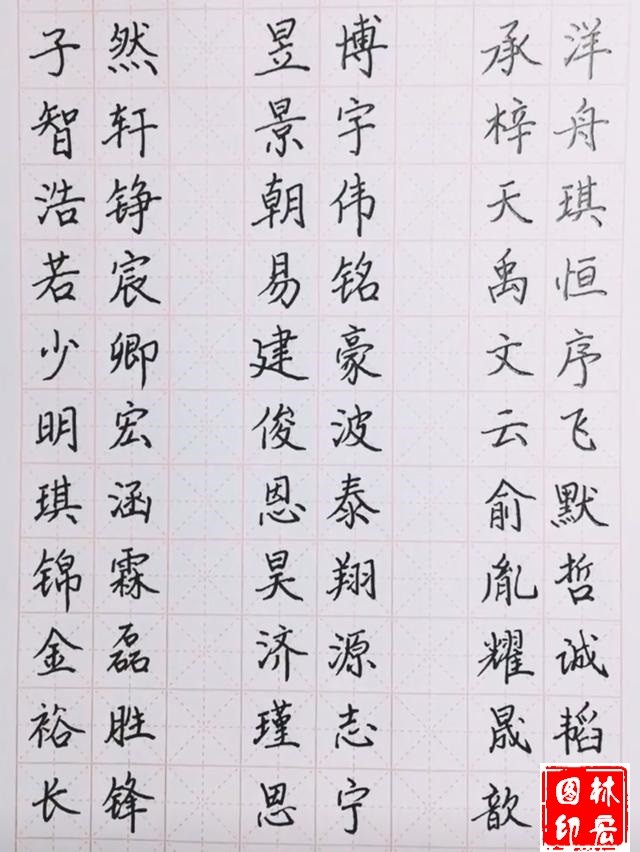 子然 昱博 承洋
智轩 景宇 梓舟
浩铮 朝伟 天琪
若宸 易铭 禹恒
少卿 建豪 文序
明宏 俊波 云飞
琪涵 恩泰 俞默
锦霖 昊翔 胤哲
金磊 济源 耀诚
裕胜 瑾志 晟韬
长锋 思宁 歆
林宏
图印